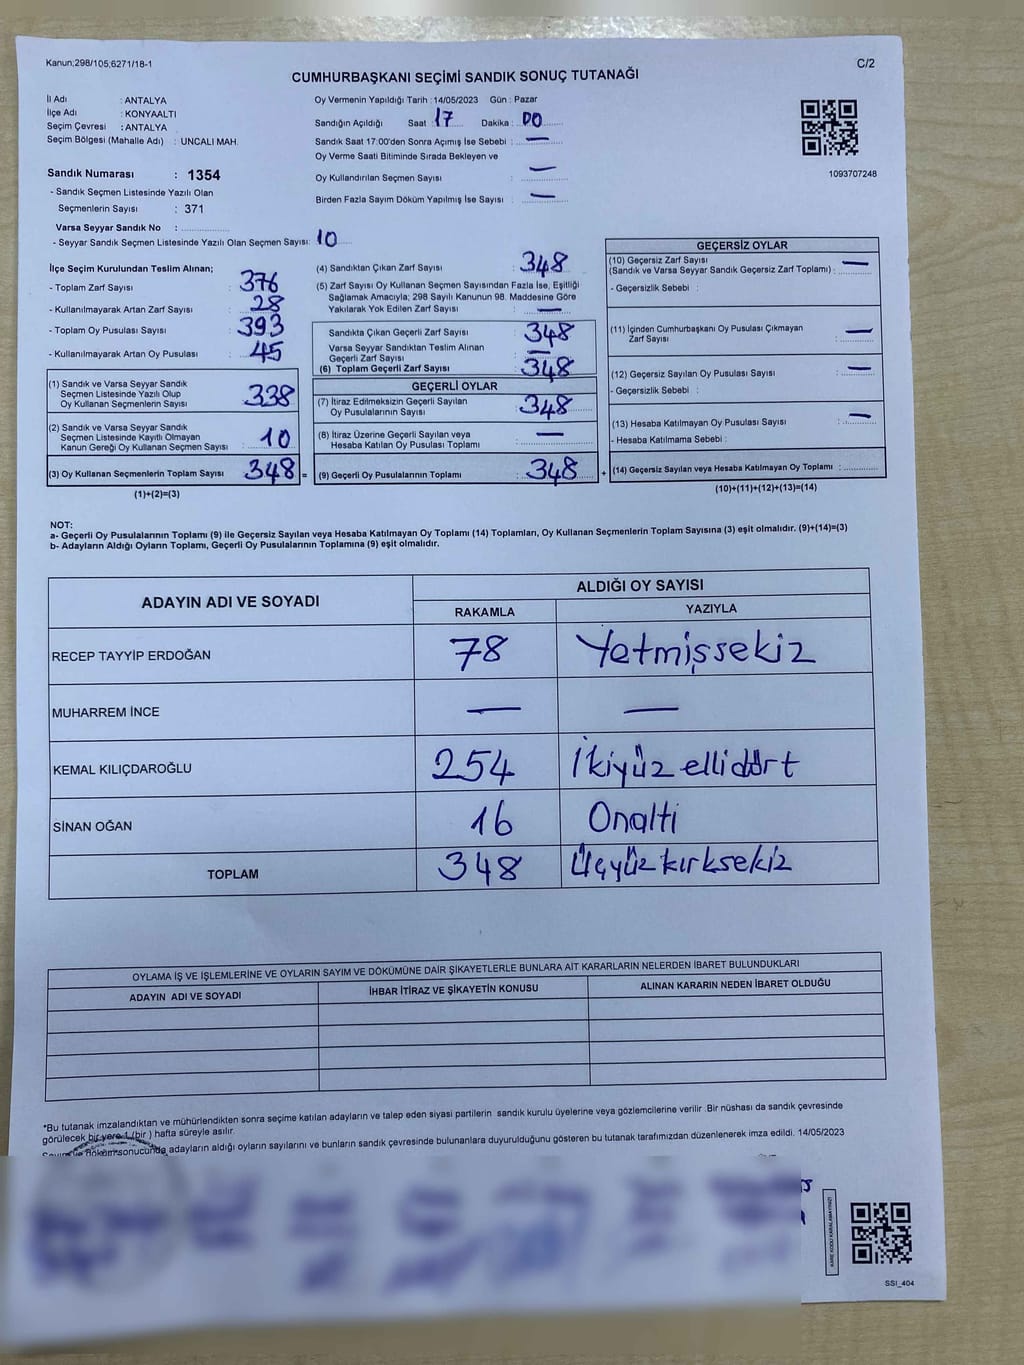 Kanun;298/105;6271/18-1
C/2
CUMHURBAŞKANI SEÇİMİ SANDIK SONUÇ TUTANAĞI
İl Adı : ANTALYA
İlçe Adı : KONYAALTI
Seçim Çevresi : ANTALYA
Seçim Bölgesi (Mahalle Adı) : UNCALI MAH.
Sandık Numarası : 1354
- Sandık Seçmen Listesinde Yazılı Olan
Seçmenlerin Sayısı : 371
Varsa Seyyar Sandık No :
- Seyyar Sandık Seçmen Listesinde Yazılı Olan Seçmen Sayısı: 10
Oy Vermenin Yapıldığı Tarih : 14/05/2023 Gün : Pazar
Sandığın Açıldığı Saat : 17 Dakika : 00
Sandık Saat 17:00'den Sonra Açımış İse Sebebi : —
Oy Verme Saati Bitiminde Sırada Bekleyen ve
Oy Kullandırılan Seçmen Sayısı : —
Birden Fazla Sayım Döküm Yapılmış İse Sayısı : —
1093707248
İlçe Seçim Kurulundan Teslim Alınan;
- Toplam Zarf Sayısı : 376
- Kullanılmayarak Artan Zarf Sayısı : 28
- Toplam Oy Pusulası Sayısı : 393
- Kullanılmayarak Artan Oy Pusulası : 45
(1) Sandık ve Varsa Seyyar Sandık
Seçmen Listesinde Yazılı Olup
Oy Kullanan Seçmenlerin Sayısı : 338
(2) Sandık ve Varsa Seyyar Sandık
Seçmen Listesinde Kayıtlı Olmayan
Kanun Gereği Oy Kullanan Seçmen Sayısı : 10
(3) Oy Kullanan Seçmenlerin Toplam Sayısı : 348 =
(1)+(2)=(3)
(4) Sandıktan Çıkan Zarf Sayısı : 348
(5) Zarf Sayısı Oy Kullanan Seçmen Sayısından Fazla İse, Eşitliği
Sağlamak Amacıyla; 298 Sayılı Kanunun 98. Maddesine Göre
Yakılarak Yok Edilen Zarf Sayısı : —
Sandıkta Çıkan Geçerli Zarf Sayısı : 348
Varsa Seyyar Sandıktan Teslim Alınan
Geçerli Zarf Sayısı : —
(6) Toplam Geçerli Zarf Sayısı : 348
GEÇERLİ OYLAR
(7) İtiraz Edilmeksizin Geçerli Sayılan
Oy Pusulalarının Sayısı : 348
(8) İtiraz Üzerine Geçerli Sayılan veya
Hesaba Katılan Oy Pusulası Toplamı : —
(9) Geçerli Oy Pusulalarının Toplamı : 348 +
GEÇERSİZ OYLAR
(10) Geçersiz Zarf Sayısı
(Sandık ve Varsa Seyyar Sandık Geçersiz Zarf Toplamı) : —
- Geçersizlik Sebebi :
(11) İçinden Cumhurbaşkanı Oy Pusulası Çıkmayan
Zarf Sayısı : —
(12) Geçersiz Sayılan Oy Pusulası Sayısı : —
- Geçersizlik Sebebi :
(13) Hesaba Katılmayan Oy Pusulası Sayısı : —
- Hesaba Katılmama Sebebi :
(14) Geçersiz Sayılan veya Hesaba Katılmayan Oy Toplamı :
(10)+(11)+(12)+(13)=(14)
NOT:
a- Geçerli Oy Pusulalarının Toplamı (9) ile Geçersiz Sayılan veya Hesaba Katılmayan Oy Toplamı (14) Toplamları, Oy Kullanan Seçmenlerin Toplam Sayısına (3) eşit olmalıdır. (9)+(14)=(3)
b- Adayların Aldığı Oyların Toplamı, Geçerli Oy Pusulalarının Toplamına (9) eşit olmalıdır.
ADAYIN ADI VE SOYADI
ALDIĞI OY SAYISI
RAKAMLA YAZIYLA
RECEP TAYYİP ERDOĞAN 78 Yetmişsekiz
MUHARREM İNCE — —
KEMAL KILIÇDAROĞLU 254 İkiyüz ellidört
SİNAN OĞAN 16 Onalti
TOPLAM 348 Üçyüz kırksekiz
OYLAMA İŞ VE İŞLEMLERİNE VE OYLARIN SAYIM VE DÖKÜMÜNE DAİR ŞİKAYETLERLE BUNLARA AİT KARARLARIN NELERDEN İBARET BULUNDUKLARI
ADAYIN ADI VE SOYADI İHBAR İTİRAZ VE ŞİKAYETİN KONUSU ALINAN KARARIN NEDEN İBARET OLDUĞU
*Bu tutanak imzalandıktan ve mühürlendikten sonra seçime katılan adayların ve talep eden siyasi partilerin sandık kurulu üyelerine veya gözlemcilerine verilir .Bir nüshası da sandık çevresinde
görülecek bir yere 1 (bir ) hafta süreyle asılır.
sonucunda adayların aldığı oyların sayılarını ve bunların sandık çevresinde bulunanlara duyurulduğunu gösteren bu tutanak tarafımızdan düzenlenerek imza edildi. 14/05/2023
KARE KODU KARALAMAYINIZ!
SSI_404